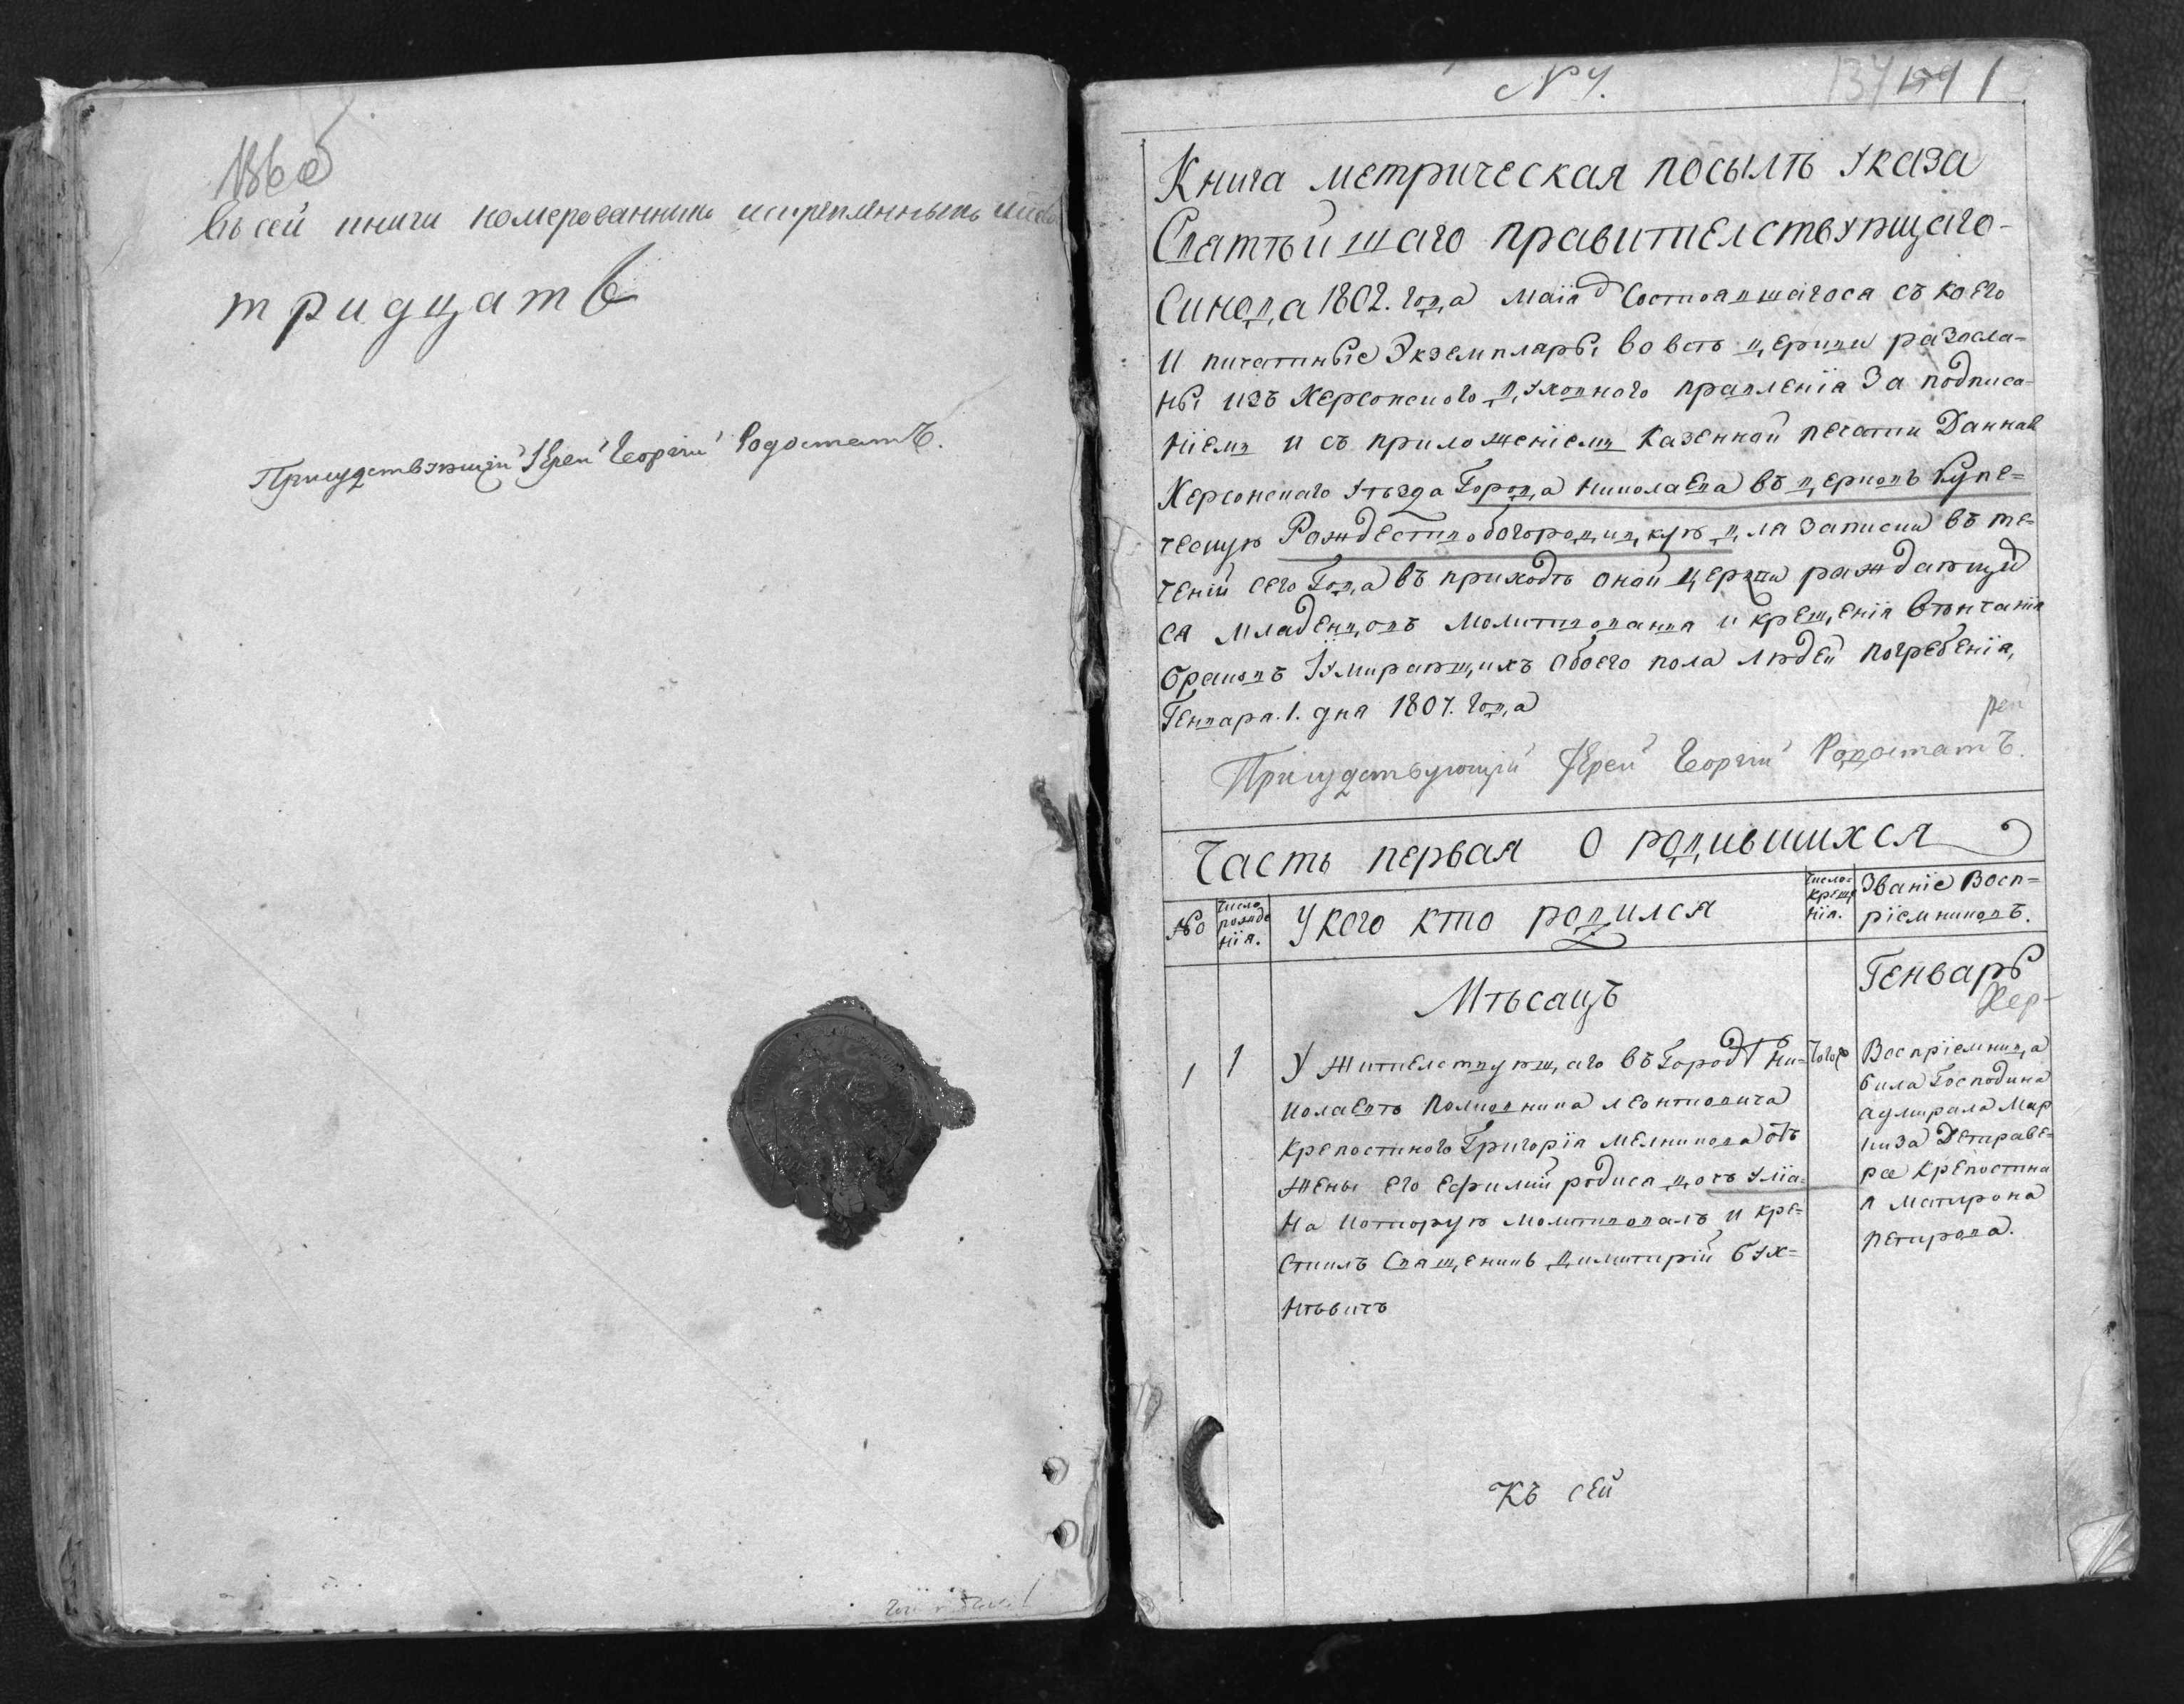 Въ сей книги номерованныхъ искрепленныхъ
тридцать
Присудствующій Іерей Георгій Родостатъ.
№ 4.
Книга метрическая посылѣ указа
Святѣйшаго правителствующаго
Синода 1802. года маія Состоявшагося съ коего
И пичатныіе Экземпляры во всѣ церкви разосла=
ны изъ Херсонского духовного правленія За подписа-
ніемъ и съ приложеніемъ казенной печати Данная
Херсонскаго уѣзда Города николаева въ церковъ Купе=
ческую Рождественобогородицкую для записки въ те=
ченіи сего Года въ приходѣ оной церкви рождающи
ся младенцовъ молитвования и крещенія Вѣнчанія
браковъ Иумирающихъ обоего пола людей погребенія,
Генваря. 1. дня 1807. года
Присудствующій Іерей Георгій Родостатъ.
Часть первая О родившихся
№
Число рожде нія.
У кого кто родился
Число креще нія.
Званіе Восп=
ріемниковъ.
Мѣсацъ
Генварь
1
1
У жителствующаго въ Городѣ Ни=
колаевѣ полковника леонтовича
крепостного Григорія мелникова отъ
жены его ефимии родиса дочь Улія=
на которую молитвовалъ и кре=
стилъ Священикъ димитирій бух=
нѣвичъ
Воспріемница
била Господина
адмирала Мар
киза Детраве=
рсе крепостна
я матрона
петрова.
Къ сей